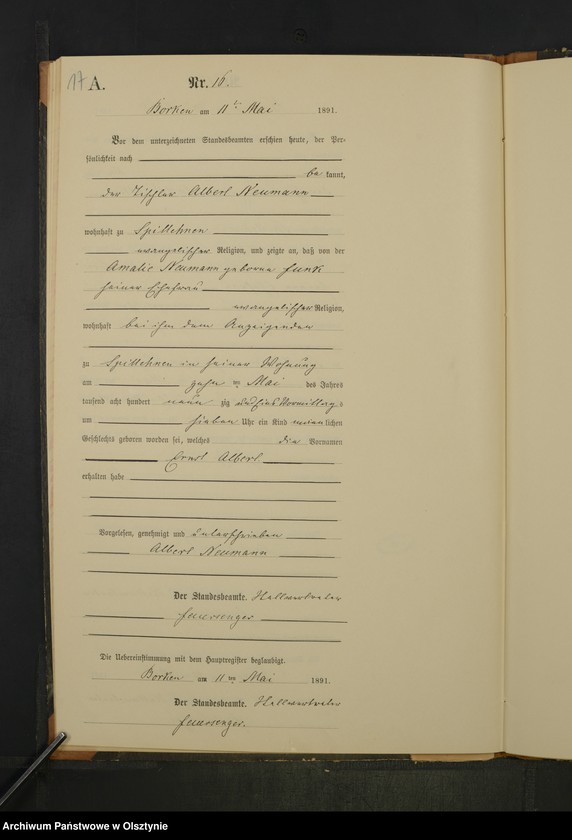 17 A. Nr. 16.
Borken am 11ten Mai 1891.
Vor dem unterzeichneten Standesbeamten erschien heute, der Per-
sönlichkeit nach
be kannt,
der Tischler Albert Neumann
wohnhaft zu Spittehnen
evangelischer Religion, und zeigte an, daß von der
Amalie Neumann geborene Funk
seiner Ehefrau
evangelischer Religion,
wohnhaft bei ihm dem Anzeigenden
zu Spittehnen in seiner Wohnung
am zehn ten Mai des Jahres
tausend acht hundert neun zig und eins Vormittags
um sieben Uhr ein Kind männlichen
Geschlechts geboren worden sei, welches die Vornamen
Ernst Albert
erhalten habe
Vorgelesen, genehmigt und unterschrieben
Albert Neumann
Der Standesbeamte.
Die Uebereinstimmung mit dem Hauptregister beglaubigt.
Borken am 11ten Mai 1891.
Der Standesbeamte.
Archiwum Państwowe w Olsztynie